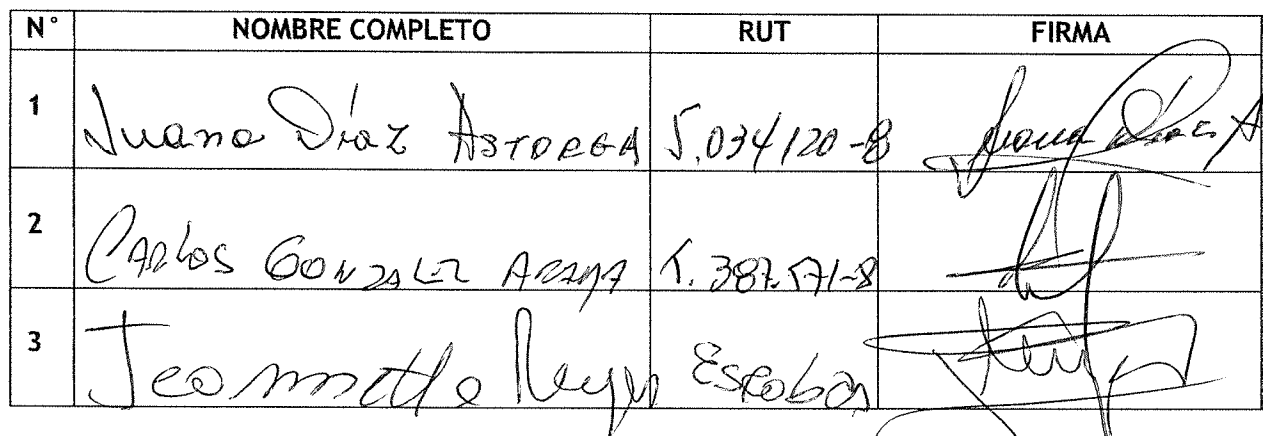 N° NOMBRE COMPLETO RUT FIRMA
1 Juana Díaz Astorga 5.034120-8 Juana Díaz A
2 Carlos Gonzalez Araya 5.387.571-8
3 Jeannette Reyes Escobar